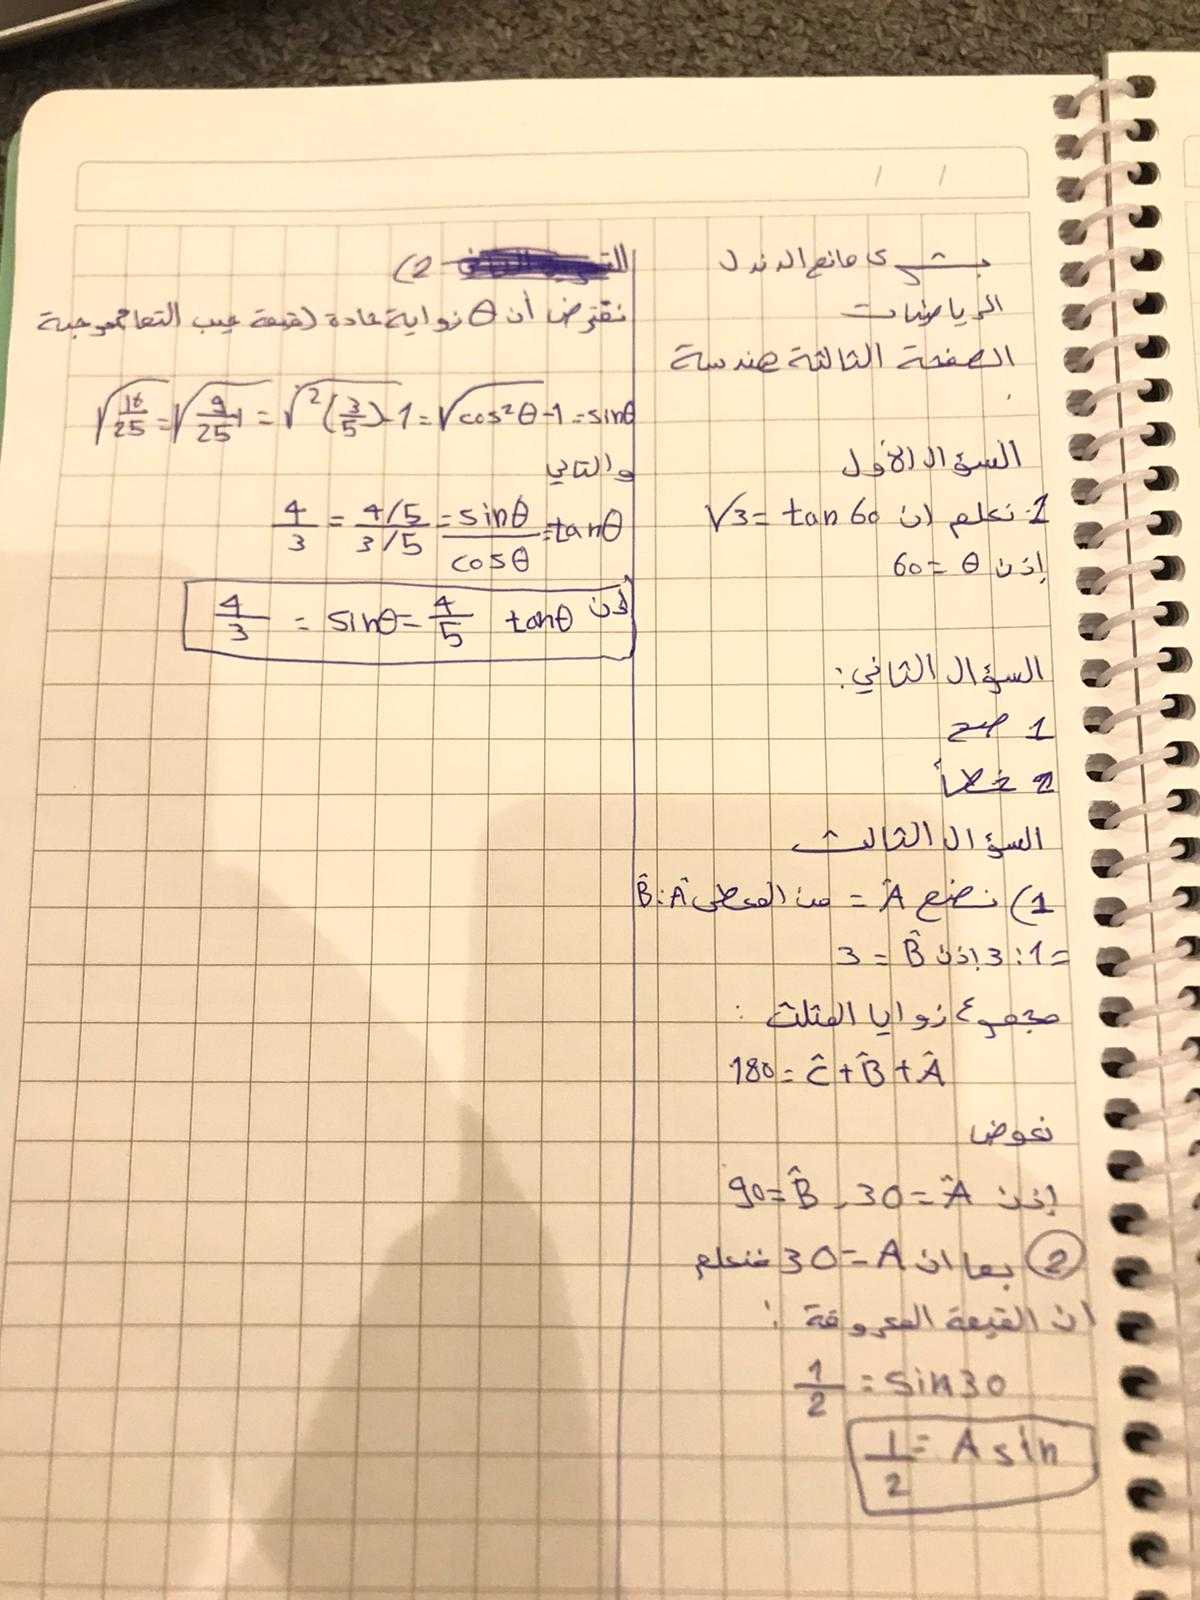 بشرى مانع الدندل
الرياضيات
الصفحة الثالثة هندسة
السؤال الأول
1- نعلم ان tan 60 = √3
إذن θ = 60
السؤال الثاني:
1 صح
2 خطأ
السؤال الثالث
1) نضع Â = من المعطى Â:B̂
=1:3 إذن B̂ = 3
مجموع زوايا المثلث:
Â+B̂+Ĉ=180
نعوض
إذن Â=30، B̂=90
2 بما ان A=30 فنعلم
ان القيمة المعروفة:
sin30 = 1/2
A sin = 1/2
2)
نفترض أن θ زواية حادة (قيمة جيب التمام موجبة
sinθ=1-cos²θ√=1-(3/5)²√=1-9/25√=16/25√
والتالي
tanθ=sinθ/cosθ=4/5/3/5=4/3
إذن tanθ 4/5=sinθ = 4/3